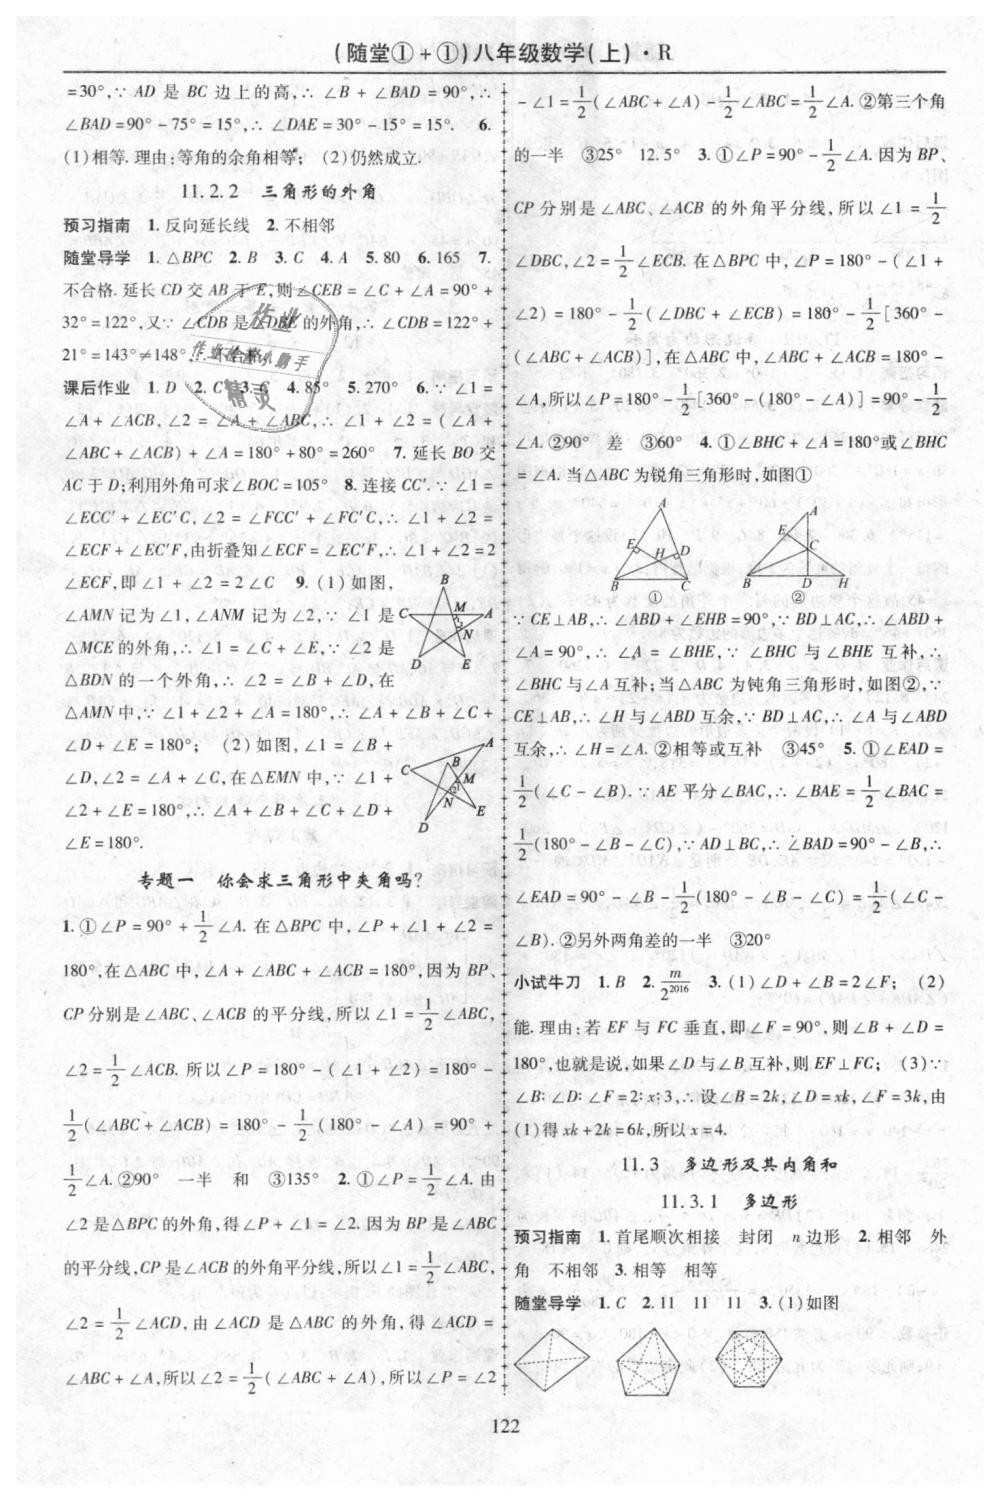 (随堂①+①)八年级数学(上)·R
=30°,∵ AD 是 BC 边上的高,∴ ∠B + ∠BAD = 90°,∴
∠BAD=90°-75°=15°,∴∠DAE=30°-15°=15°. 6.
(1)相等. 理由:等角的余角相等; (2)仍然成立.
11.2.2 三角形的外角
预习指南 1.反向延长线 2.不相邻
随堂导学 1.△BPC 2.B 3.C 4.A 5.80 6.165 7.
不合格. 延长CD交AB于E,则∠CEB=∠C+∠A=90°+
32°=122°,又∵∠CDB是∠DBE的外角,∴∠CDB=122°+
21°=143°≠148°,
课后作业 1.D 2.C 3.C 4.85° 5.270° 6.∵∠1=
∠A+∠ACB,∠2=∠A+∠ABC,∴∠1+∠2=(∠A+
∠ABC+∠ACB)+∠A=180°+80°=260° 7.延长BO交
AC于D;利用外角可求∠BOC=105° 8.连接CC′.∵∠1=
∠ECC′+∠EC′C,∠2=∠FCC′+∠FC′C,∴∠1+∠2=
∠ECF+∠EC′F,由折叠知∠ECF=∠EC′F,∴∠1+∠2=2
∠ECF,即∠1+∠2=2∠C 9.(1)如图,
∠AMN记为∠1,∠ANM记为∠2,∵∠1是
△MCE的外角,∴∠1=∠C+∠E,∵∠2是
△BDN的一个外角,∴∠2=∠B+∠D,在
△AMN中,∵∠1+∠2+∠A=180°,∴∠A+∠B+∠C+
∠D+∠E=180°; (2)如图,∠1=∠B+
∠D,∠2=∠A+∠C,在△EMN中,∵∠1+
∠2+∠E=180°,∴∠A+∠B+∠C+∠D+
∠E=180°.
专题一 你会求三角形中夹角吗?
1.①∠P=90°+1/2∠A.在△BPC中,∠P+∠1+∠2=
180°,在△ABC中,∠A+∠ABC+∠ACB=180°,因为BP、
CP分别是∠ABC、∠ACB的平分线,所以∠1=1/2∠ABC,
∠2=1/2∠ACB.所以∠P=180°-(∠1+∠2)=180°-
1/2(∠ABC+∠ACB)=180°-1/2(180°-∠A)=90°+
1/2∠A.②90° 一半 和 ③135° 2.①∠P=1/2∠A.由
∠2是△BPC的外角,得∠P+∠1=∠2.因为BP是∠ABC
的平分线,CP是∠ACB的外角平分线,所以∠1=1/2∠ABC,
∠2=1/2∠ACD,由∠ACD是△ABC的外角,得∠ACD=
∠ABC+∠A,所以∠2=1/2(∠ABC+∠A),所以∠P=∠2
-∠1=1/2(∠ABC+∠A)-1/2∠ABC=1/2∠A.②第三个角
的一半 ③25° 12.5° 3.①∠P=90°-1/2∠A.因为BP、
CP分别是∠ABC、∠ACB的外角平分线,所以∠1=1/2
∠DBC,∠2=1/2∠ECB.在△BPC中,∠P=180°-(∠1+
∠2)=180°-1/2(∠DBC+∠ECB)=180°-1/2[360°-
(∠ABC+∠ACB)],在△ABC中,∠ABC+∠ACB=180°-
∠A,所以∠P=180°-1/2[360°-(180°-∠A)]=90°-1/2
∠A.②90° 差 ③60° 4.①∠BHC+∠A=180°或∠BHC
=∠A.当△ABC为锐角三角形时,如图①
∵CE⊥AB,∴∠ABD+∠EHB=90°,∵BD⊥AC,∴∠ABD+
∠A=90°,∴∠A=∠BHE,∵∠BHC与∠BHE互补,∴
∠BHC与∠A互补;当△ABC为钝角三角形时,如图②,∵
CE⊥AB,∴∠H与∠ABD互余,∵BD⊥AC,∴∠A与∠ABD
互余,∴∠H=∠A.②相等或互补 ③45° 5.①∠EAD=
1/2(∠C-∠B).∵AE平分∠BAC,∴∠BAE=1/2∠BAC=
1/2(180°-∠B-∠C),∵AD⊥BC,∴∠BAD=90°-∠B,∴
∠EAD=90°-∠B-1/2(180°-∠B-∠C)=1/2(∠C-
∠B).②另外两角差的一半 ③20°
小试牛刀 1.B 2.m/2^2016 3.(1)∠D+∠B=2∠F; (2)
能.理由:若EF与FC垂直,即∠F=90°,则∠B+∠D=
180°,也就是说,如果∠D与∠B互补,则EF⊥FC; (3)∵
∠B∶∠D∶∠F=2∶x∶3,∴设∠B=2k,∠D=xk,∠F=3k,由
(1)得xk+2k=6k,所以x=4.
11.3 多边形及其内角和
11.3.1 多边形
预习指南 1.首尾顺次相接 封闭 n边形 2.相邻 外
角 不相邻 3.相等 相等
随堂导学 1.C 2.11 11 11 3.(1)如图
122